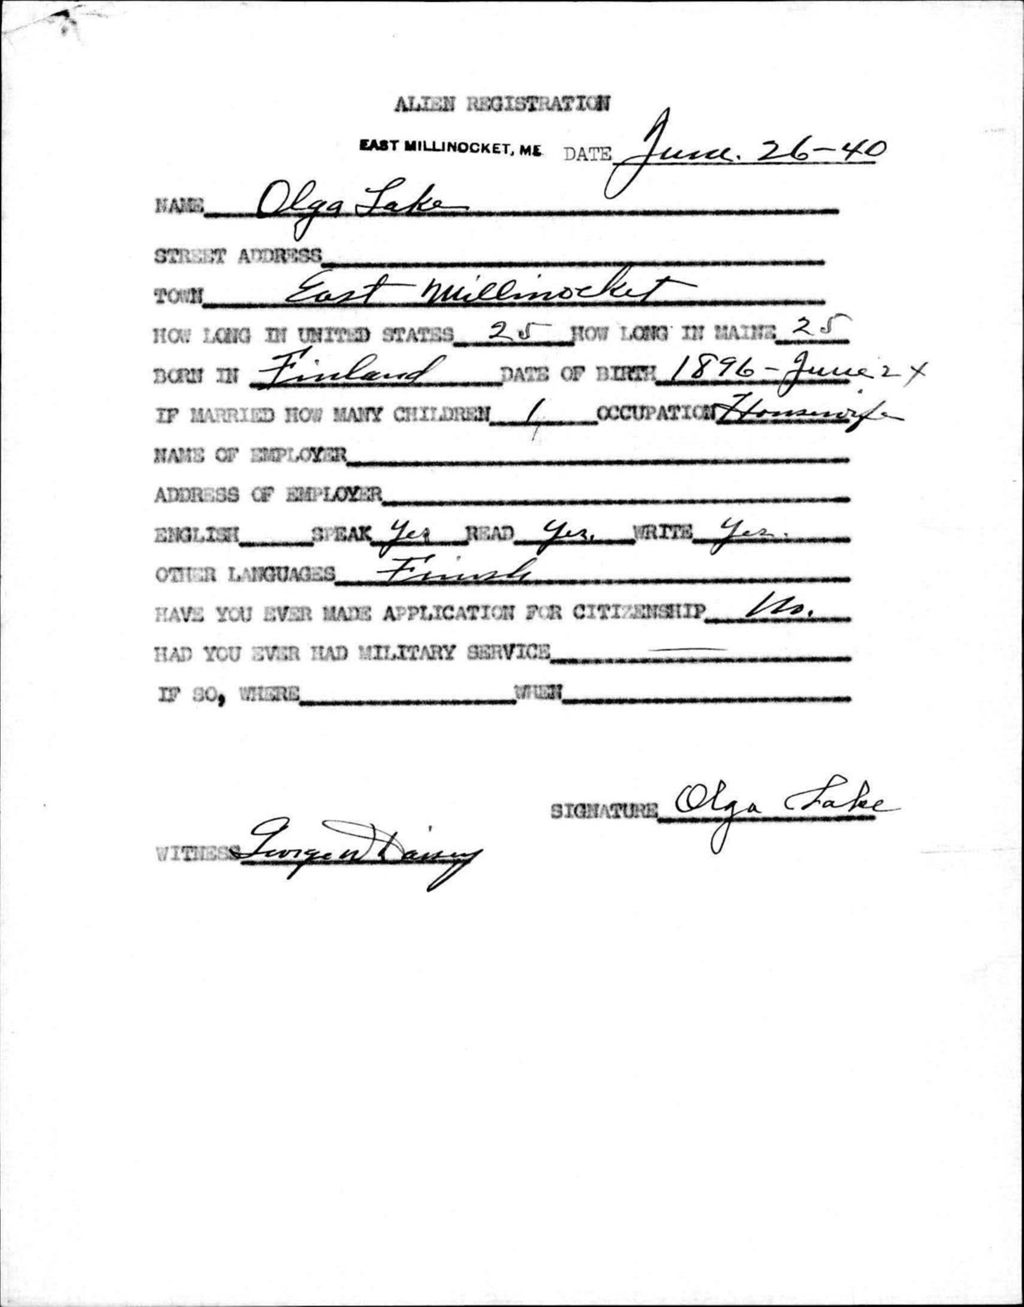 ALIEN REGISTRATION
EAST MILLINOCKET, ME. DATE June. 26-40
NAME Olga Lake
STREET ADDRESS
TOWN East Millinocket
HOW LONG IN UNITED STATES 25 HOW LONG IN MAINE 25
BORN IN Finland DATE OF BIRTH 1896 - June 2
IF MARRIED HOW MANY CHILDREN 1 OCCUPATION Housewife
NAME OF EMPLOYER
ADDRESS OF EMPLOYER
ENGLISH SPEAK Yes READ Yes. WRITE Yes.
OTHER LANGUAGES Finish
HAVE YOU EVER MADE APPLICATION FOR CITIZENSHIP No.
HAD YOU EVER HAD MILITARY SERVICE
IF SO, WHERE WHEN
SIGNATURE Olga Lake
WITNESS George W